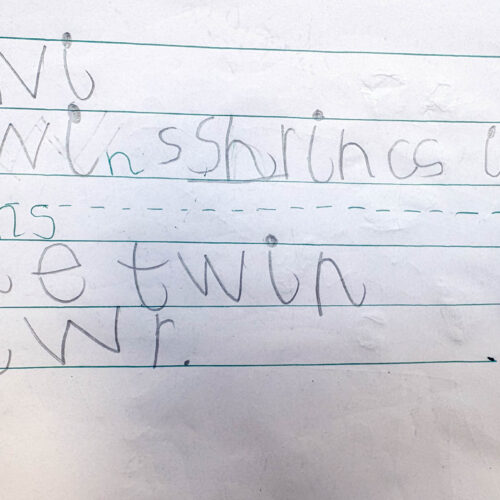 wi
win s Shrincs i
ns
e twin
wr.